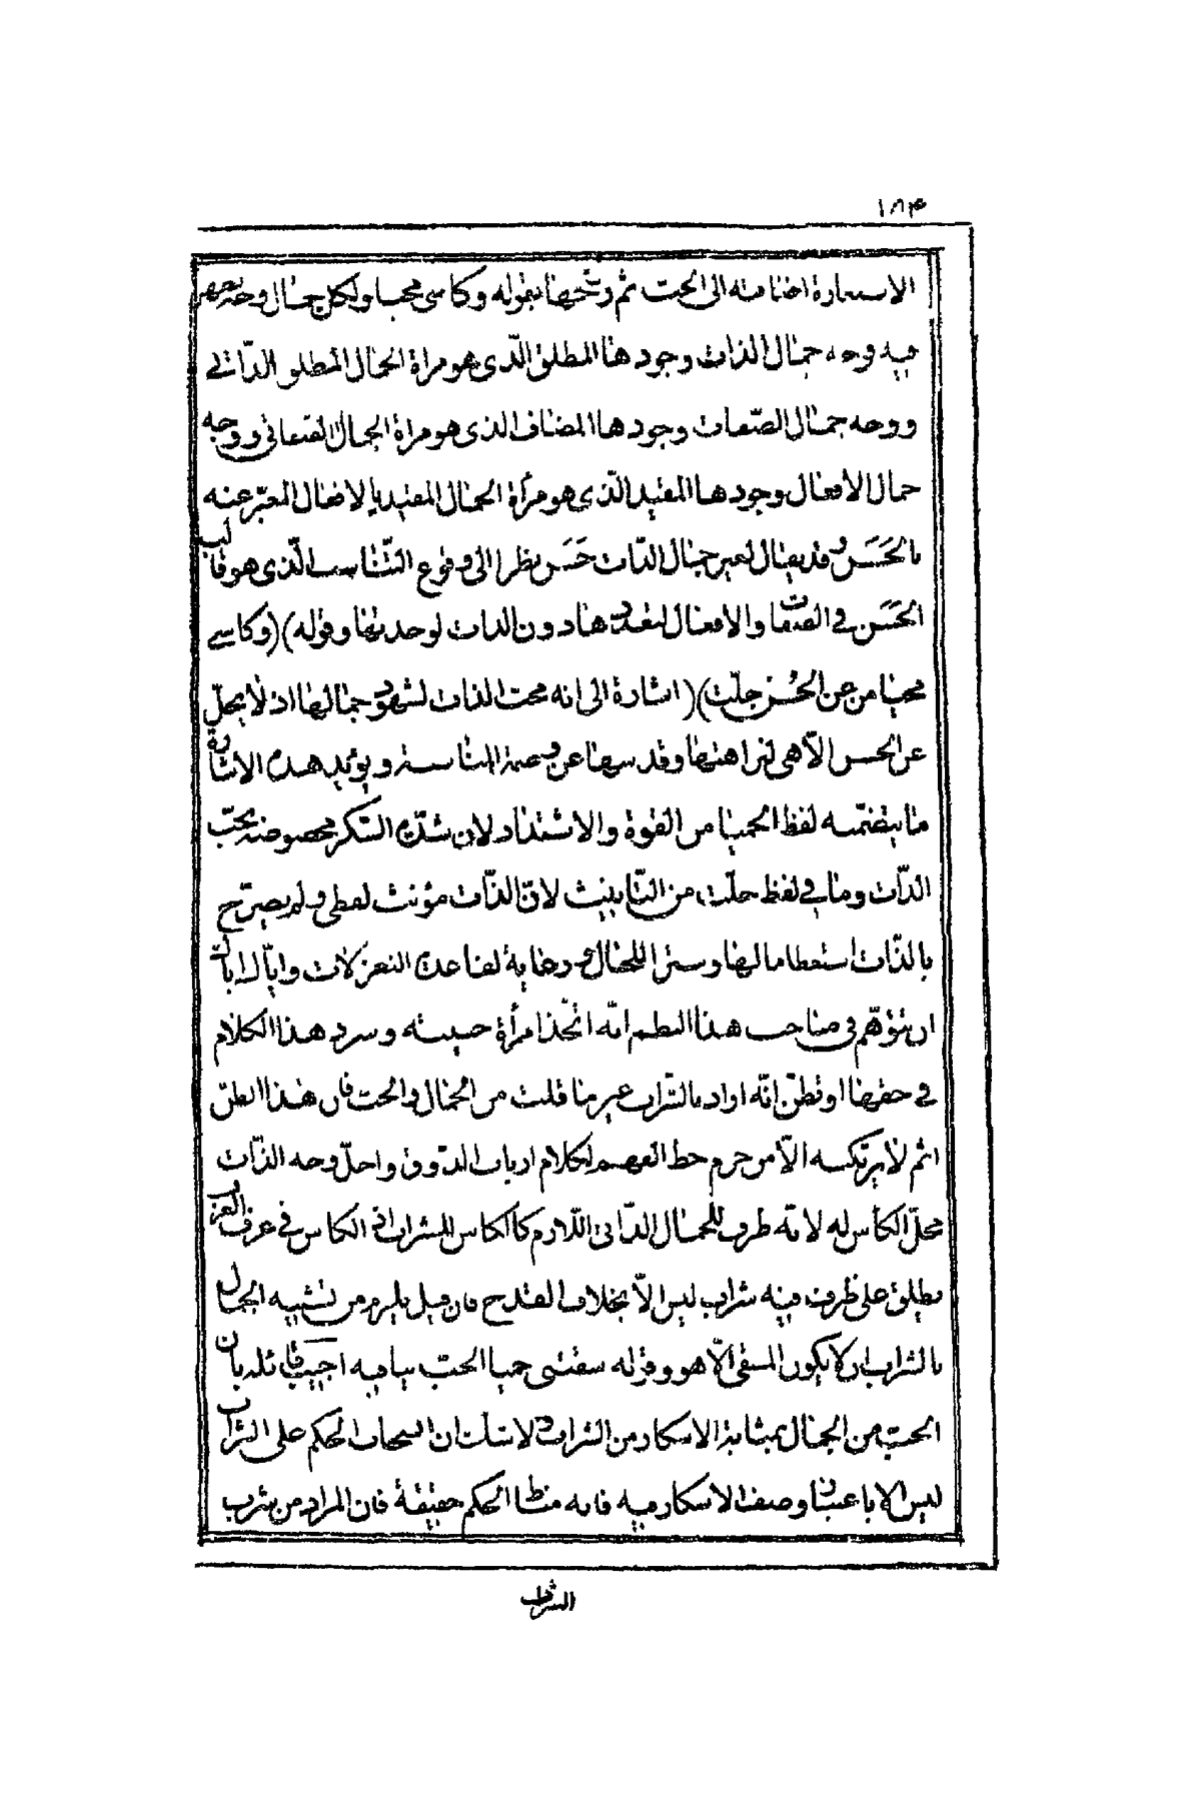 ١٨۴
الاستعارة اضافته الى الحب ثم رشحها بقوله وكاسى محيا ولكل جمال وجه يظهر
فيه وجه جمال الذات وجودها المطلق الذى هو مراة الجمال المطلق الذاتى
ووجه جمال الصفات وجودها المضاف الذى هو مراة الجمال الصفاتى ووجه
جمال الافعال وجودها المقيد الذى هو مرأة الجمال المقيد بالافعال المعبر عنه
بالحسن وقد يقال لغير جمال الذات حسن نظرا الى وقوع التناسب الذى هو قالب
الحسن فى الصفات والافعال لتعددها دون الذات لوحدتها وقوله) (وكاسى
محيا من عن الحسن جلت) (اشارة الى انه محب الذات لشهود جمالها اذ لا يجل
عن الحسن الا هى لنزاهتها وقدسها عن وصمة المناسبة ويؤيد هذه الاشارة
ما يتضمنه لفظ الحميا من القوة والاشتداد لان شدة السكر مخصوصة بحب
الذات وما فى لفظ جلت من التانيث لان الذات مؤنث لفظى ولم يصرح
بالذات استعظاما لها وسترا للحال ورعاية لقاعدة التغزلات واياك اياك
ان تتوهم فى صاحب هذا النظم انه اتخذ امرأة حبيبته وسرد هذا الكلام
فى حقها او تظن انه اراد بالشراب غير ما قلت من الجمال والحب فان هذا الظن
اثم لا يرتكبه الا من حرم حظ الفهم لكلام ارباب الذوق واحل وجه الذات
محل الكأس له لانه ظرف للجمال الذاتى اللازم كالكاس للشراب اذ الكاس فى عرف العرب
يطلق على ظرف فيه شراب ليس الا بخلاف القدح فان قيل يلزم من تشبيه الجمال
بالشراب ان لا يكون المسقى الا هو وقوله سقتنى حميا الحب ينافيه اجيب قائله بان
الحب من الجمال بمثابة الاسكار من الشراب ولا شك ان انسحاب الحكم على الشراب
ليس الا باعتبار وصف الاسكار فيه فانه مناط الحكم حقيقة فان المراد من شرب
الشراب